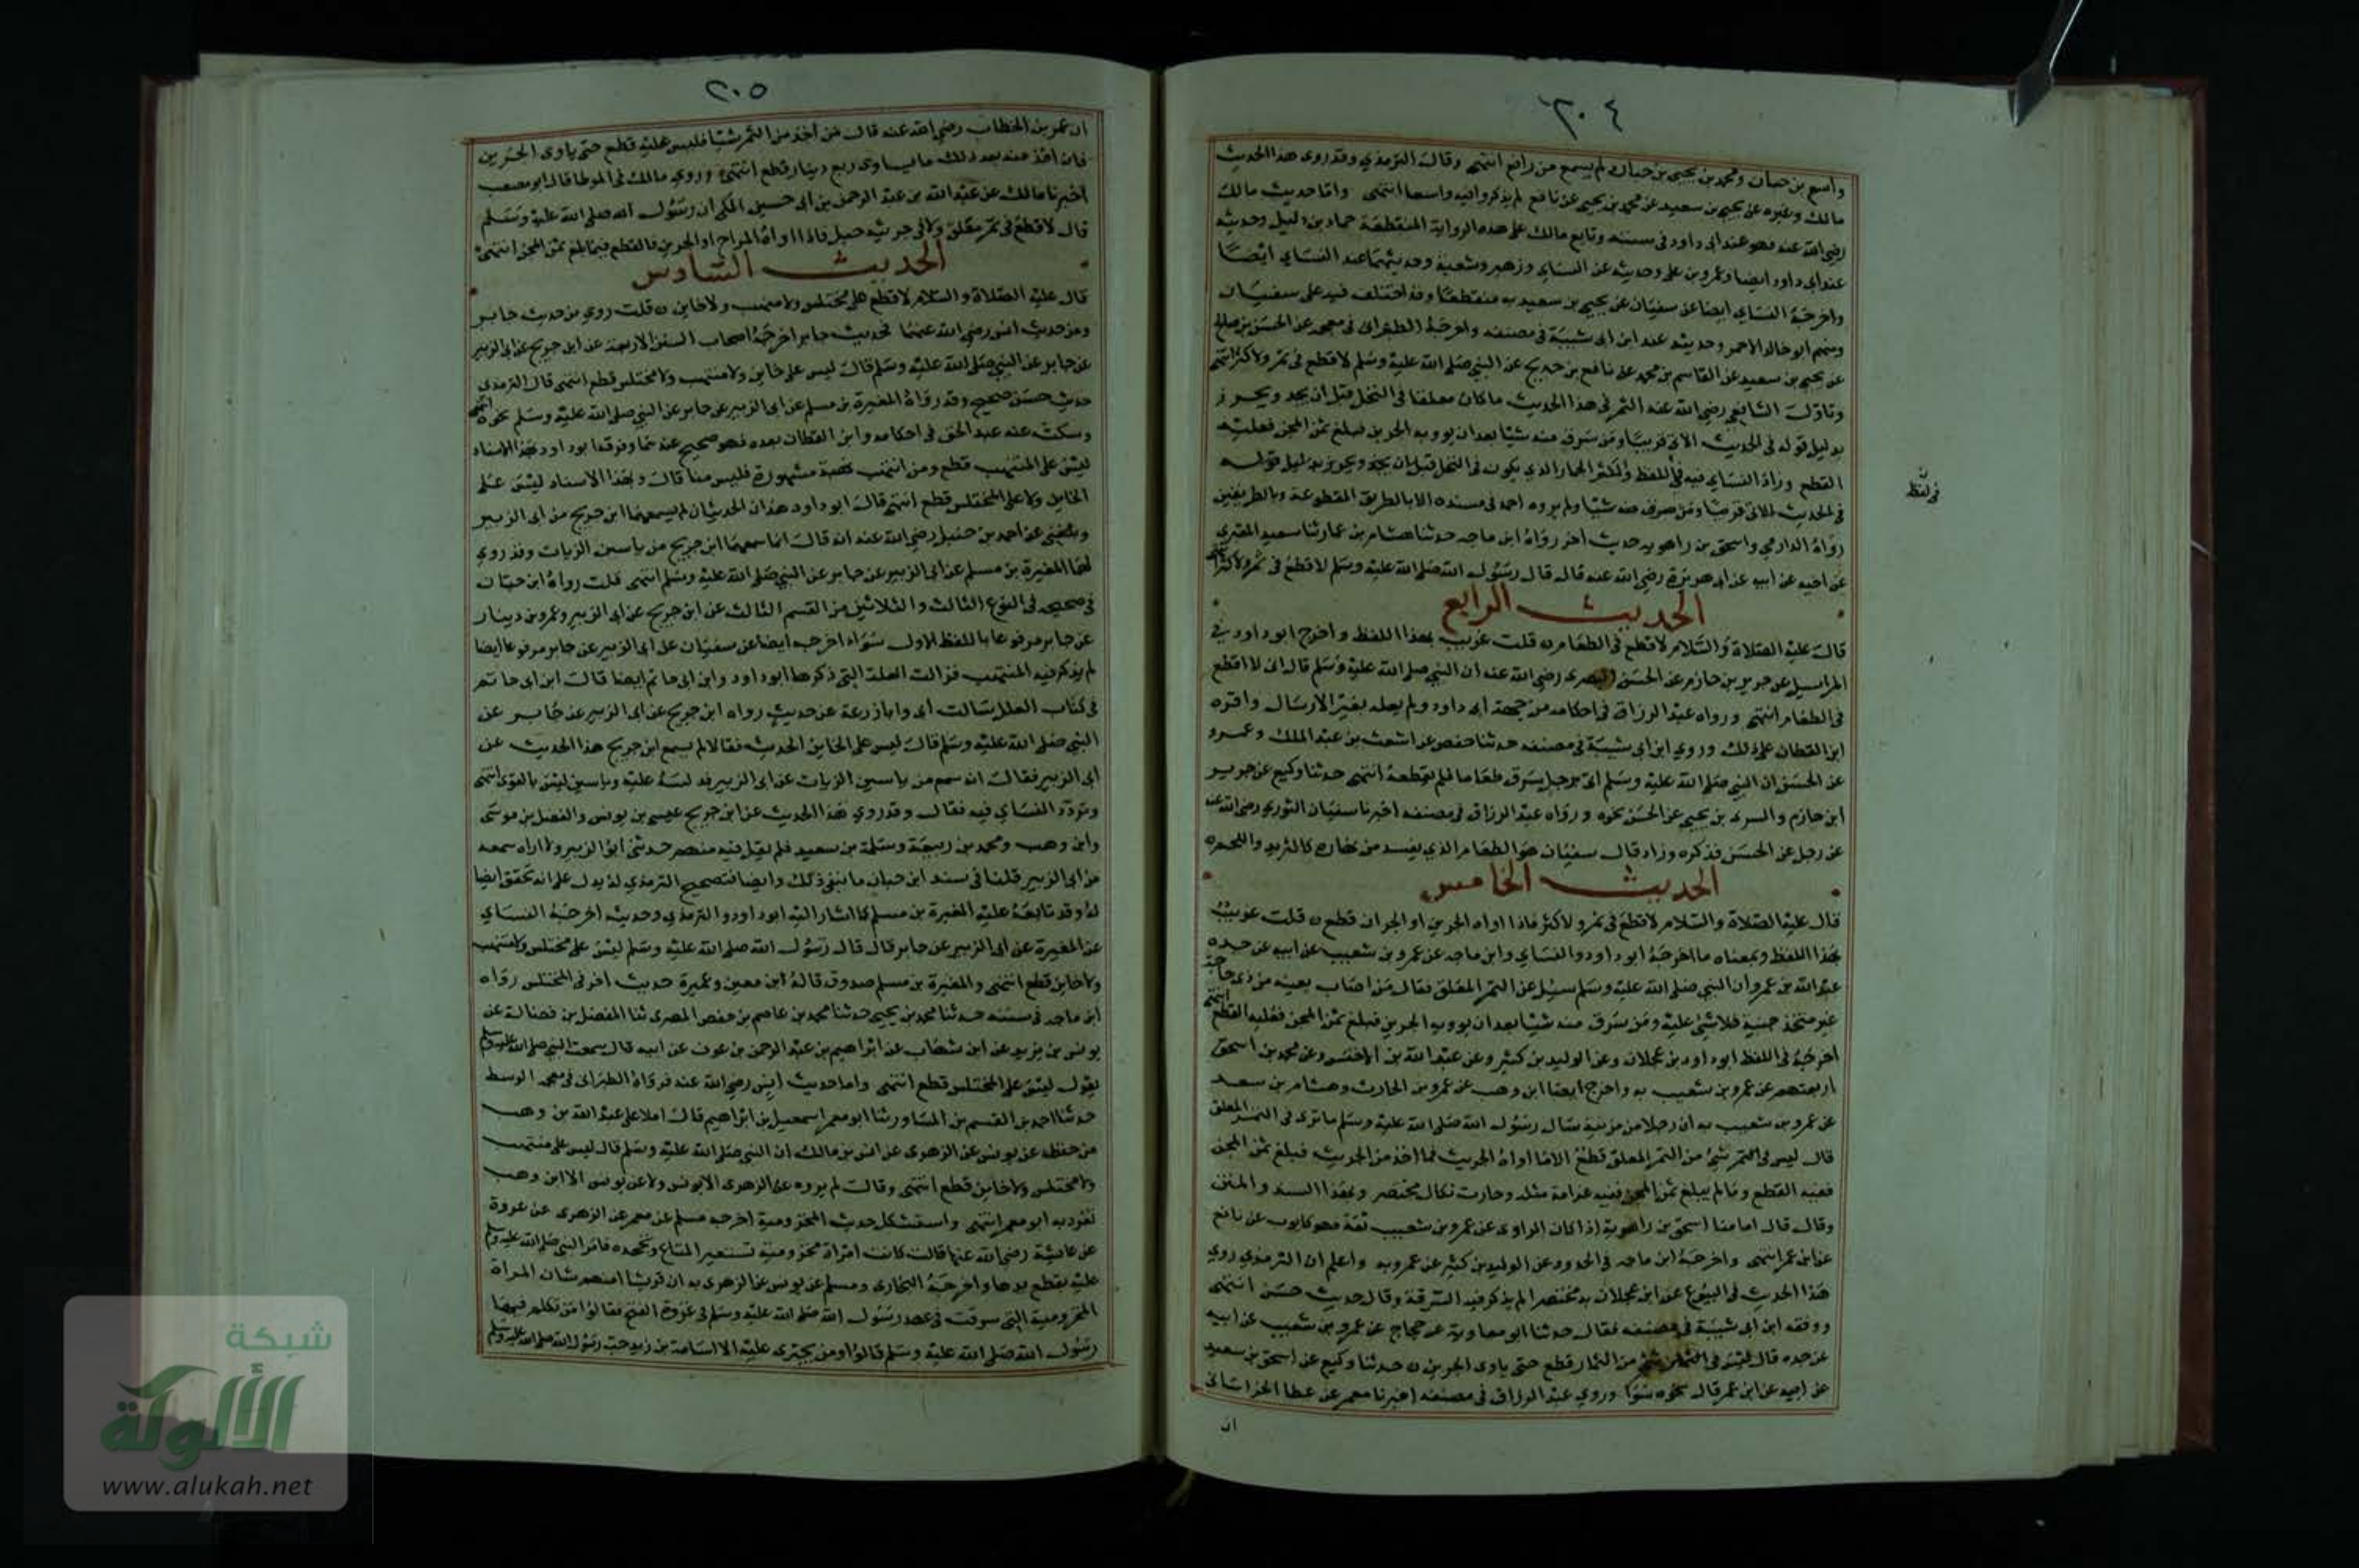 ٣٠٤
واسع بن حبان ومحمد بن يحيى بن حبان لم يسمع من رافع انتهى وقال الترمذي وقد روى هذا الحديث
مالك وغيره عن يحيى بن سعيد عن محمد بن يحيى عن نافع لم يذكروا فيه واسعا انتهى واما حديث مالك
رضي الله عنه فهو عند ابي داود في سننه وتابع مالك على هذه الرواية المنقطعة حماد بن دليل وحديثه
عند ابي داود ايضا وعمرو بن علي وحديثه عن النساي وزهير وشعبة وحديثهما عند النساي ايضا
واخرجه النساي ايضا عن سفيان عن يحيى بن سعيد به منقطعا وقد اختلف فيه على سفيان
ومنهم ابو خالد الاحمر وحديثه عند ابن ابي شيبة في مصنفه واخرجه الطبراني في معجمه عن الحسن بن صالح
عن يحيى بن سعيد عن القاسم بن محمد عن نافع بن خديج عن النبي صلى الله عليه وسلم لا قطع في ثمر ولا كثر انتهى
وتاول الشافعي رضي الله عنه الثمر في هذا الحديث ما كان معلقا في النخل قبل ان يجد ويحرز
بدليل قوله في الحديث الاتي قريبا ومن سرق منه شيئا بعد ان يوويه الجرين فبلغ ثمن المجن فعليه
القطع وزاد النساي فيه في اللفظ والكثر الجمار الذي يكون في النخل قبل ان يجد ويحرز بدليل قوله
في الحديث الاتي قريبا ومن سرق منه شيئا ولم يروه احمد في مسنده الا بالطريق المقطوعة وبالطريقين
رواه الدارمي واسحق بن راهويه حديث اخر رواه ابن ماجه حدثنا هشام بن عمار ثنا سعيد المقبري
عن اخيه عن ابيه عن ابي هريرة رضي الله عنه قال قال رسول الله صلى الله عليه وسلم لا قطع في ثمر ولا كثر انتهى
الحديث الرابع
قال عليه الصلاة والسلام لا قطع في الطعام ن قلت غريب بهذا اللفظ واخرج ابو داود في
المراسيل عن جرير بن حازم عن الحسن البصري رضي الله عنه ان النبي صلى الله عليه وسلم قال اني لا اقطع
في الطعام انتهى ورواه عبد الرزاق في احكامه من جهة ابي داود ولم يعله بغير الارسال واقره
ابن القطان على ذلك وروي ابن ابي شيبة في مصنفه حدثنا حفص عن اشعث بن عبد الملك وعمرو
عن الحسن ان النبي صلى الله عليه وسلم اتي برجل سرق طعاما فلم يقطعه انتهى حدثنا وكيع عن جرير
ابن حازم والسري بن يحيى عن الحسن نحوه ورواه عبد الرزاق في مصنفه اخبرنا سفيان الثوري رضي الله عنه
عن رجل عن الحسن فذكره وزاد قال سفيان هو الطعام الذي يفسد من نهاره كالثريد واللحم ه
الحديث الخامس
قال عليه الصلاة والسلام لا قطع في ثمر ولا كثر فاذا اواه الجرين او الجران قطع ن قلت غريب
بهذا اللفظ وبمعناه ما اخرجه ابو داود والنساي وابن ماجه عن عمرو بن شعيب عن ابيه عن جده
عبد الله بن عمرو ان النبي صلى الله عليه وسلم سيل عن التمر المعلق فقال من اصاب بعينه من ذي حاجة
غير متخذ خبنة فلا شيء عليه ومن سرق منه شيئا بعد ان يوويه الجرين فبلغ ثمن المجن فعليه القطع انتهى
اخرجه في اللفظ ابو داود بن عجلان وعن الوليد بن كثير وعن عبد الله بن الاخنس وعن محمد بن اسحق
اربعتهم عن عمرو بن شعيب به واخرج ايضا ابن وهب عن عمرو بن الحارث وهشام بن سعد
عن عمرو بن شعيب به ان رجلا من مزينة سال رسول الله صلى الله عليه وسلم ما ترى في الثمر المعلق
قال ليس في شيء من الثمر المعلق قطع الا ما اواه الجرين فما اخذ من الجرين فبلغ ثمن المجن
ففيه القطع وما لم يبلغ ثمن المجن ففيه غرامة مثله وجارت نكال مختصر وبهذا السند والمتن
وقال قال امامنا اسحق بن راهويه اذا كان الراوي عن عمرو بن شعيب ثقة فهو كايوب عن نافع
عن ابن عمر انتهى واخرجه ابن ماجه في الحدود عن الوليد بن كثير عن عمرو به واعلم ان الترمذي روي
هذا الحديث في البيوع عن ابن عجلان به مختصرا لم يذكر فيه السرقة وقال حديث حسن انتهى
ووقفه ابن ابي شيبة في مصنفه فقال حدثنا ابو معاوية عن حجاج عن عمرو بن شعيب عن ابيه
عن جده قال ليس في شيء من الثمار قطع حتى ياوي الجرين ن حدثنا وكيع عن اسحق بن سعيد
عن ابيه عن ابن عمر قال نحوه سوا وروي عبد الرزاق في مصنفه اخبرنا معمر عن عطا الخراساني
ان
في لفظ
٢٠٥
ان عمر بن الخطاب رضي الله عنه قال من اخذ من الثمر شيئا فليس عليه قطع حتى ياوي الجرين
فان اخذ منه بعد ذلك ما يساوي ربع دينار قطع انتهى وروي مالك في الموطا قال ابو مصعب
اخبرنا مالك عن عبد الله بن عبد الرحمن بن ابي حسين المكي ان رسول الله صلى الله عليه وسلم
قال لا قطع في ثمر معلق ولا في حريسة جبل فاذا اواه المراح او الجرين فالقطع فيما بلغ ثمن المجن انتهى
الحديث السادس
قال عليه الصلاة والسلام لا قطع على مختلس ولا منتهب ولا خاين ن قلت روي من حديث جابر
ومن حديث انس رضي الله عنهما فحديث جابر اخرجه اصحاب السنن الاربعة عن ابن جريج عن ابي الزبير
عن جابر عن النبي صلى الله عليه وسلم قال ليس على خاين ولا منتهب ولا مختلس قطع انتهى قال الترمذي
حديث حسن صحيح وقد رواه المغيرة بن مسلم عن ابي الزبير عن جابر عن النبي صلى الله عليه وسلم نحوه انتهى
وسكت عنه عبد الحق في احكامه وابن القطان بعده فهو صحيح عندهما وفرقه ابو داود بهذا الاسناد
ليس على المنتهب قطع ومن انتهب نهبة مشهورة فليس منا قال وبهذا الاسناد ليس على
الخاين ولا على المختلس قطع انتهى قال ابو داود هذان الحديثان لم يسمعهما ابن جريج من ابي الزبير
وبلغني عن احمد بن حنبل رضي الله عنه انه قال انما سمعهما ابن جريج من ياسين الزيات وقد روي
لهما المغيرة بن مسلم عن ابي الزبير عن جابر عن النبي صلى الله عليه وسلم انتهى قلت رواه ابن حبان
في صحيحه في النوع الثالث والثلاثين من القسم الثالث عن ابن جريج عن ابي الزبير وعمرو بن دينار
عن جابر مرفوعا باللفظ الاول سواء اخرجه ايضا عن سفيان عن ابي الزبير عن جابر مرفوعا ايضا
لم يذكر فيه المنتهب فزالت العلة التي ذكرها ابو داود وابن ابي حاتم ايضا قال ابن ابي حاتم
في كتاب العلل سالت ابي وابا زرعة عن حديث رواه ابن جريج عن ابي الزبير عن جابر عن
النبي صلى الله عليه وسلم قال ليس على الخاين الحديث فقالا لم يسمع ابن جريج هذا الحديث عن
ابي الزبير فقال انه سمع من ياسين الزيات عن ابي الزبير قد لبسه عليه وياسين ليس بالقوي انتهى
وتردد النساي فيه فقال وقد روي هذا الحديث عن ابن جريج عيسى بن يونس والفضل بن موسى
وابن وهب ومحمد بن ربيعة وسلمة بن سعيد فلم يقل فيه منهم حدثني ابو الزبير ولا اراه سمعه
من ابي الزبير قلنا في سند ابن حبان ما ينفي ذلك وايضا فتصحيح الترمذي له يدل على انه تحقق ايضا
له وقد تابعه عليه المغيرة بن مسلم كما اشار اليه ابو داود والترمذي وحديثه اخرجه النساي
عن المغيرة عن ابي الزبير عن جابر قال قال رسول الله صلى الله عليه وسلم ليس على مختلس ولا منتهب
ولا خاين قطع انتهى والمغيرة بن مسلم صدوق قاله ابن معين وغيره حديث اخر في المختلس رواه
ابن ماجه في سننه حدثنا محمد بن يحيى حدثنا محمد بن عاصم بن حفص المصري ثنا المفضل بن فضالة عن
يونس بن يزيد عن ابن شهاب عن ابراهيم بن عبد الرحمن بن عوف عن ابيه قال سمعت النبي صلى الله عليه وسلم
يقول ليس على المختلس قطع انتهى واما حديث انس رضي الله عنه فرواه الطبراني في معجمه الوسط
حدثنا احمد بن القسم بن المساور ثنا ابو معمر اسمعيل بن ابراهيم قال املا علي عبد الله بن وهب
من حفظه عن يونس عن الزهري عن انس بن مالك ان النبي صلى الله عليه وسلم قال ليس على منتهب
ولا مختلس ولا خاين قطع انتهى وقال لم يروه عن الزهري الا يونس ولا عن يونس الا ابن وهب
تفرد به ابو معمر انتهى واستشكل حديث المخزومية اخرجه مسلم عن معمر عن الزهري عن عروة
عن عايشة رضي الله عنها قالت كانت امراة مخزومية تستعير المتاع وتجحده فامر النبي صلى الله عليه وسلم
عليه بقطع يدها واخرجه البخاري ومسلم عن يونس عن الزهري به ان قريشا اهمهم شان المراة
المخزومية التي سرقت في عهد رسول الله صلى الله عليه وسلم في غزوة الفتح فقالوا من يكلم فيها
رسول الله صلى الله عليه وسلم قالوا ومن يجتري عليه الا اسامة بن زيد حب رسول الله صلى الله عليه وسلم
شبكة
الألوكة
www.alukah.net